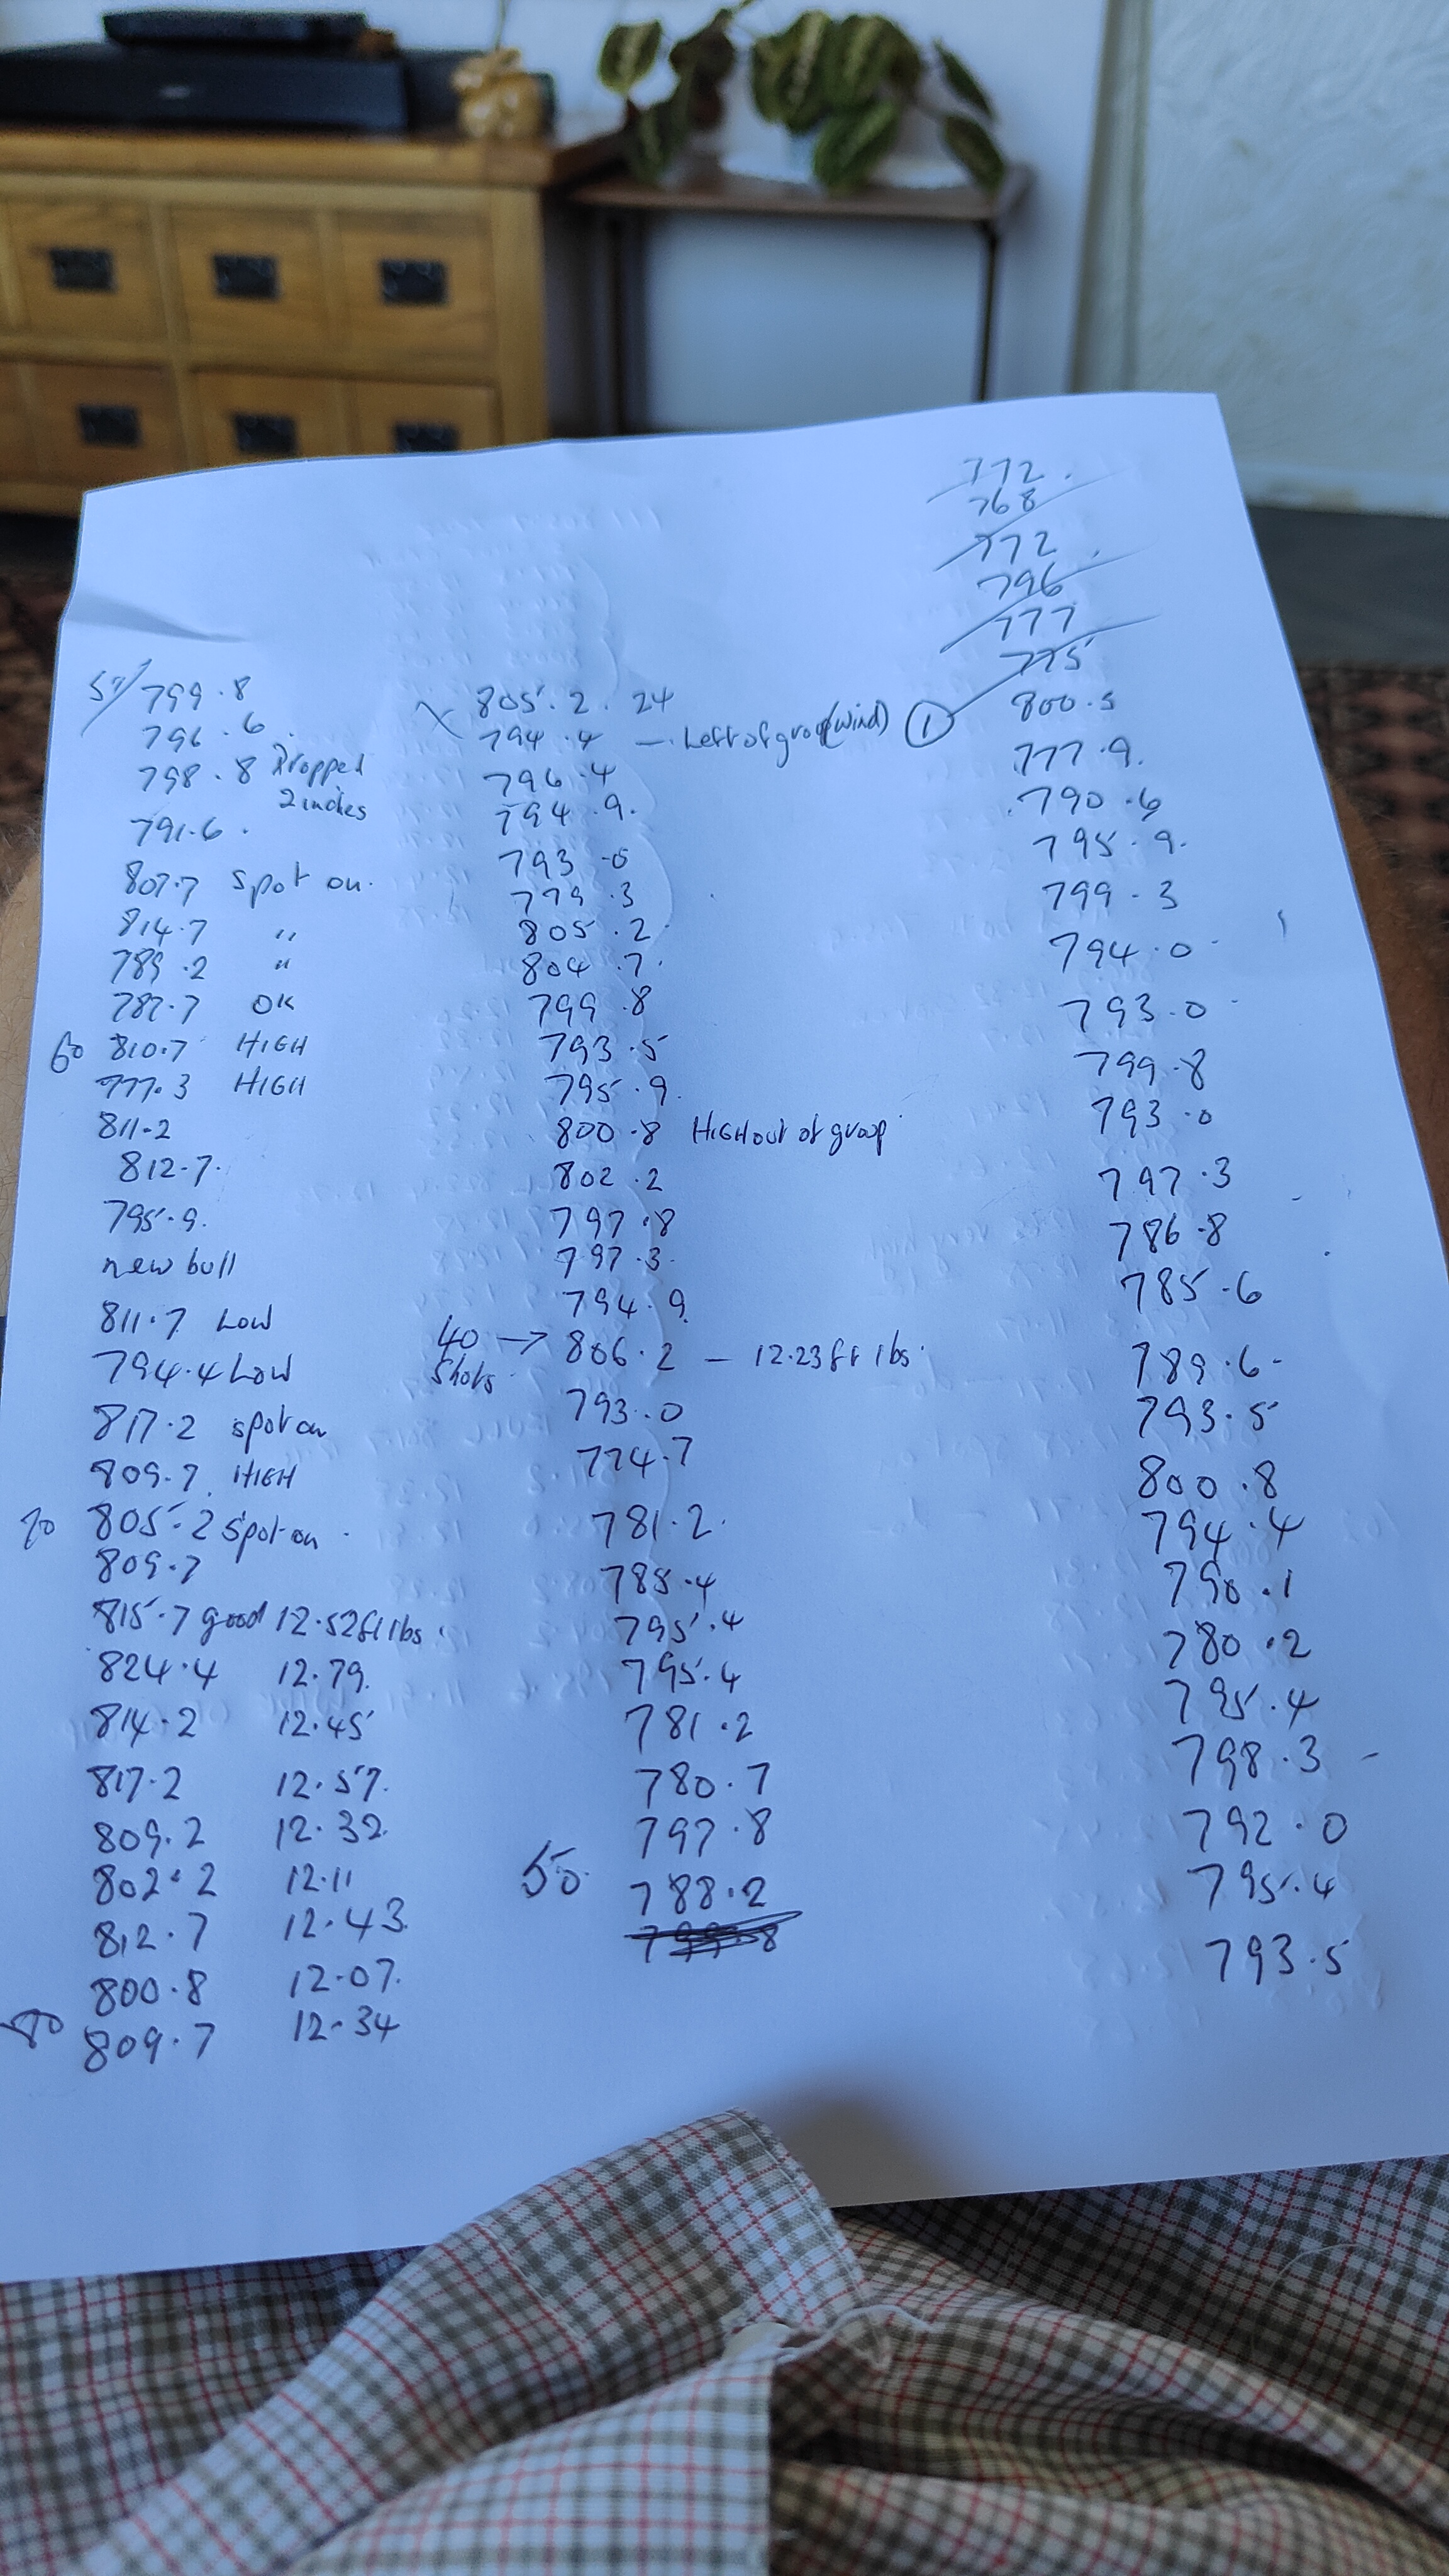 772.
768
772.
796
777
775
① 800.5
777.9.
790.6
795.9.
799.3
794.0
793.0
799.8
793.0
797.3
786.8
785.6
789.6
793.5
800.8
794.4
790.1
780.2
795.4
798.3
792.0
795.4
793.5
X 805.2. 24
794.4 - Left of group (wind)
796.4
794.9.
793.0
779.3
805.2
804.7.
799.8
793.5
795.9.
800.8 HIGH out of group
802.2
797.8
797.3.
794.9
40 shots → 806.2 - 12.23 ft lbs.
793.0
774.7
781.2.
788.4
795.4
795.4
781.2
780.7
797.8
50. 788.2
799.8
799.8
796.6.
798.8 Dropped 2 inches
791.6.
807.7 Spot on.
814.7 "
789.2 "
787.7 OK
60 810.7 HIGH
777.3 HIGH
811.2
812.7.
795.9.
new bull
811.7 Low
794.4 Low
817.2 spot on
809.7 HIGH
70 805.2 Spot on.
809.7
815.7 good 12.52 ft lbs.
824.4 12.79.
814.2 12.45
817.2 12.57.
809.2 12.32
802.2 12.11
812.7 12.43.
800.8 12.07.
80 809.7 12.34